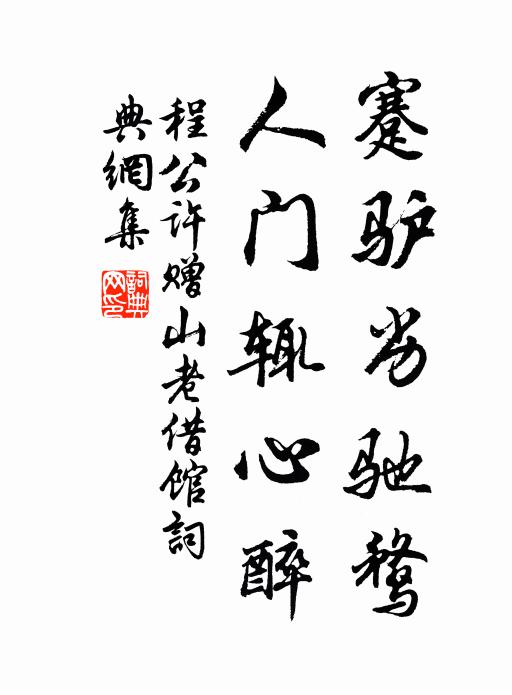 蹇驴劣驰鹜
人门辄心醉
程公许赠山老借馆詞
典網集
詞典网印